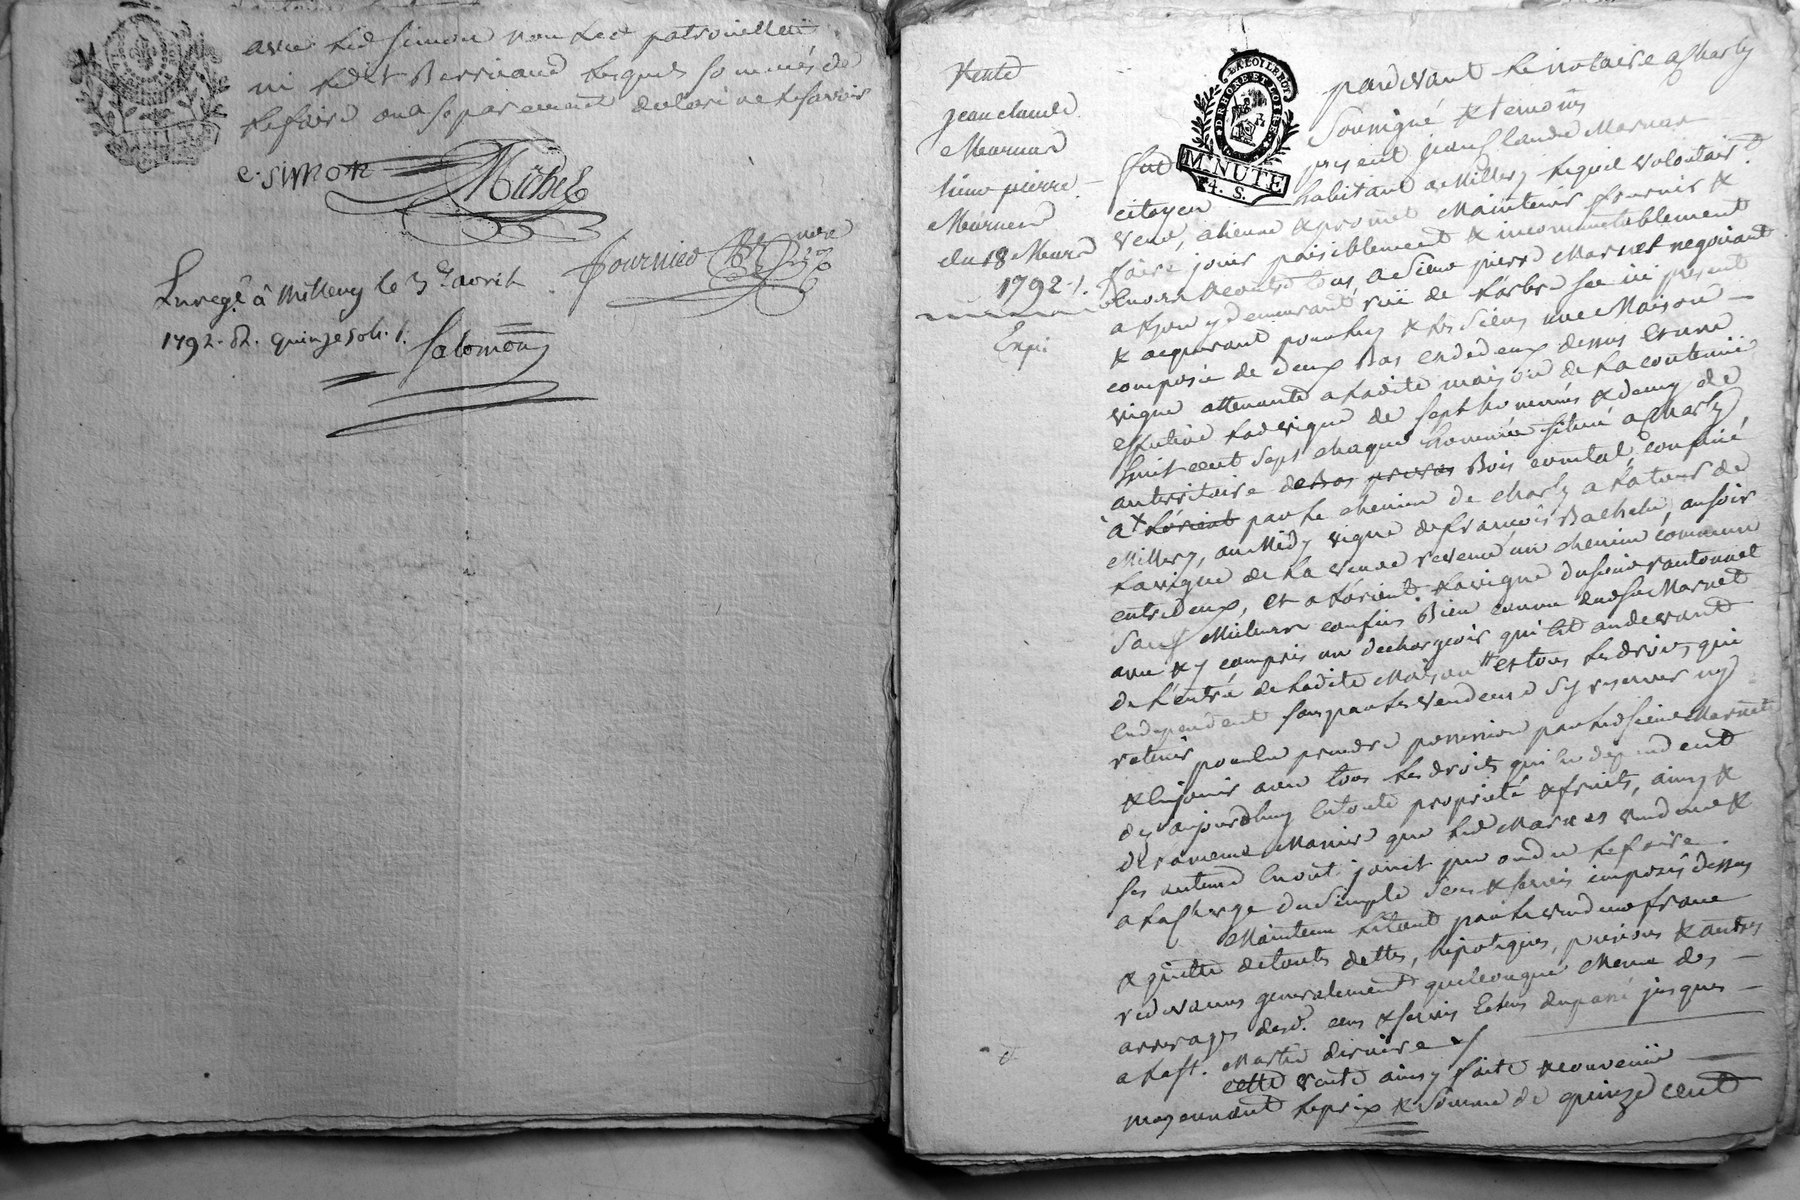 avec led Simon non led patrouillet
ni ledit Berricaud lesquels sommés de
le faire ont separement declaré ne le savoir
MINUTE
c. simon
Michel
fournied
Enregé. à Millery le 3 avril
1792. R. quinze sols.
Salomon
Vente
jean claude
Marnas
sieur pierre
Marnas
du 18 Mars
1792
Expé
LA LOI LE ROI
D. RHONE ET LOIRE
MINUTE
4. S.
pardevant le notaire a Charly
Soussigné & temoins
fut present jean Claude Marnas
citoyen habitant a Millery lequel volontairt.
vend, aliene & promet Maintenir fournir &
faire jouir paisiblement & incommutablement
envers & contre tous, a Sieur pierre Marnet negotiant
a Lyon y demeurant rue de l'arbre sec ici present
& acquerant pour luy & les siens une Maison
composée de deux Bas et de deux dessus et une
vigne attenante a ladite maison de la contenue
estimée lad vigne de sept hommées & demy de
huit cent sept chaque hommée située a Charly,
au territoire de Bois comtal, confiné
a l'orient par le chemin de Charly a la tour de
Millery, au Midy vigne de françois Bachelu, au soir
la vigne de la veuve revenu un chemin commun
entredeux, et a l'orient la vigne du sieur vautonnet
Sauf Meilleurs confins Bien connu dudit sr Marnet
avec & y compris un dechargeoir qui est au devant
de l'entrée de ladite Maison et tous les droits qui
en dependent sans par les vendeurs s'y reserver ny
retenir pour en prendre possession par led sieur Marnet
& en jouir avec tous les droits qui en dependent
des aujourdhuy en toute propriété & fruits, ainsy &
de la meme Manier que led Marnas vendeur &
ses auteurs en ont jouit pu ou du le faire
a la Charge du Simple Sens & servis imposés dessus
Maintenu etant par le vendeur franc
& quitte de toute dettes, hipoteques, pensions & autres
redevances generalement quelconque Meme des
arrerages desd. cens & servis echus du passé jusques
a la st. Martin derniere
cette vente ainsy faite & convenue
moyennant le prix & somme de quinze cent